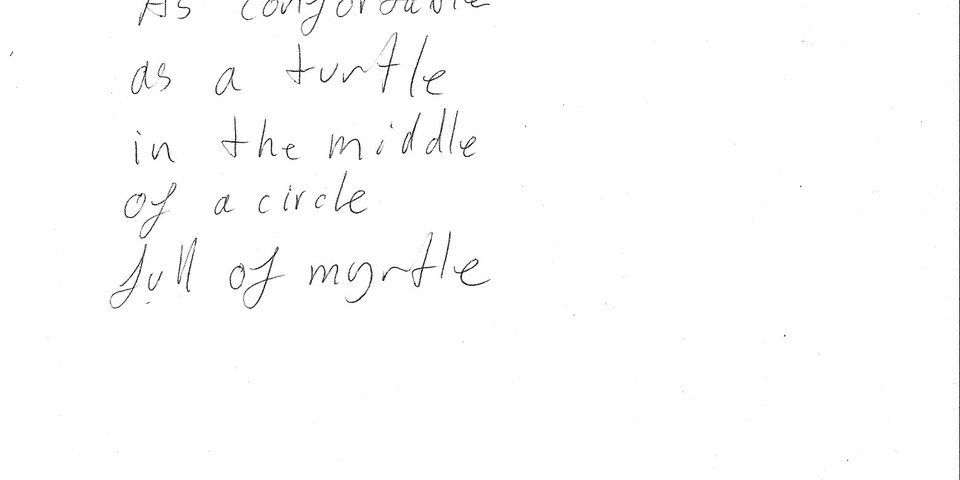 As confortable
as a turtle
in the middle
of a circle
full of myrtle